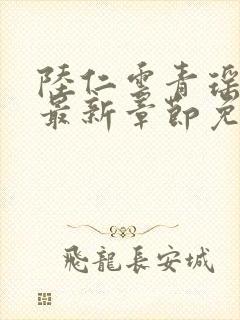 陸仁雲青瑤
最新章節免
飛龍長安城